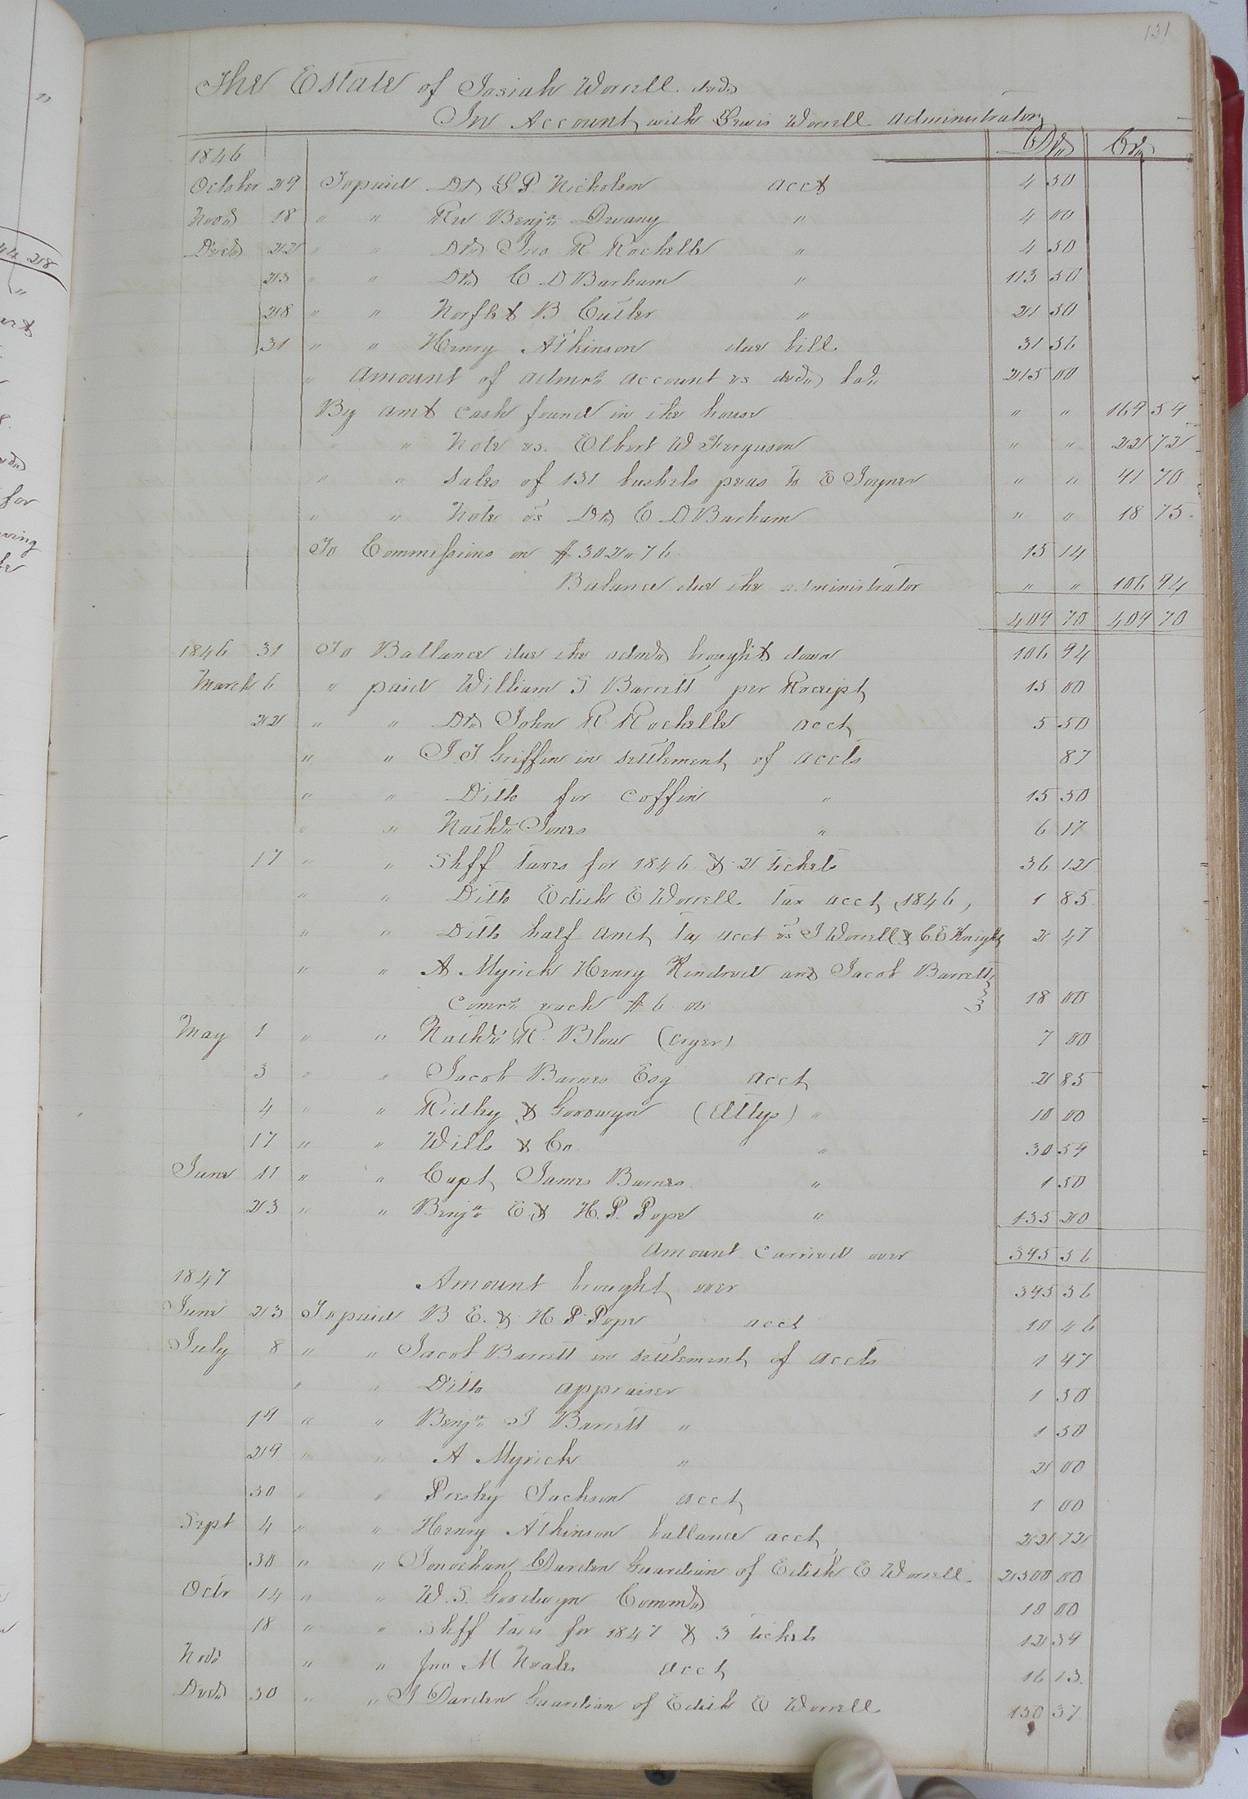 131
The Estate of Josiah Worrell decd
In Account with Lewis Worrell administrator
Dr Cr
1846
October 29 To paid Dr S P Nicholson acct 4 50
Novr 18 " " Rev Benjn Devany " 4 00
Decr 22 " " Dr Jno R Rochelle " 4 50
23 " " Dr C D Barham " 113 50
28 " " Norflt B Cutler " 21 50
31 " " Henry Atkinson due bill 31 56
" amount of admrs account vs decd 215 00
By amt cash found in the house " " 169 59
" " Note vs. Elbert W Ferguson " " 22 72
" " Sales of 131 bushels peas to E Joyner " " 41 70
" " Note vs Dr C D Barham " " 18 75
To Commissions on $302.76 15 14
Balance due the administrator " " 106 94
409 70 409 70
1846 31 To Ballance due the admr brought down 106 94
March 6 " paid William S Barrett per Receipt 15 00
22 " " Dr John R Rochelle acct 5 50
" " J. J Griffin in settlement of accts 87
" " Ditto for coffin " 15 50
" " Nathl Jones " 6 17
17 " " Shff taxes for 1846 & 2 tickets 36 12
" " Ditto Edith E Worrell tax acct, 1846, 1 85
" " Ditto half amt tax acct vs J Worrell & C E Knight 2 47
" " A Myrick Henry Kindred and Jacob Barrett
Comrs each $6 00 18 00
May 1 " " Nathl R. Blow (cryer) 7 00
3 " " Jacob Barnes Esq acct 2 85
4 " " Ridley & Goodwyn (Attys) " 10 00
17 " " Wills & Co " 30 59
June 11 " " Capt James Barnes " 1 50
23 " " Benjn E & H. P. Pope " 135 20
Amount carried over 395 56
1847 Amount brought over 395 56
June 23 To paid B E. & H P Pope acct 10 46
July 8 " " Jacob Barrett in settlement of accts 1 97
" " Ditto appraiser 1 50
19 " " Benjn J Barrett " 1 50
29 " " A Myrick " 2 00
30 " " Presley Jackson acct 1 00
Sept 4 " " Henry Atkinson ballance acct 22 72
30 " " Jonathan Darden Guardian of Edith E Worrell 2500 00
Octr 14 " " W. S. Goodwyn Commr 10 00
18 " " Shff taxes for 1847 & 3 tickets 12 39
Novr " " Jno M Noales acct 16 13
Decr 30 " " J Darden Guardian of Edith E Worrell 150 37